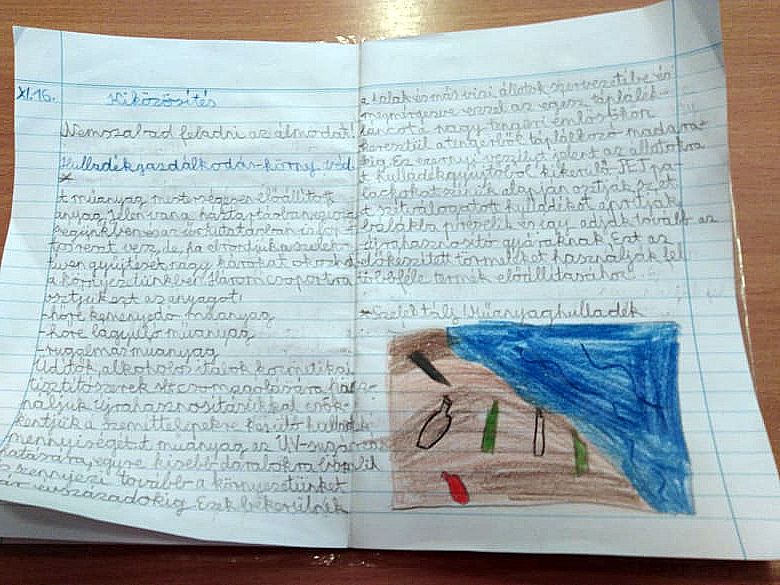 XI.16.
Kiközösítés
Nem szabad feladni az álmodat!
Hulladékgazdálkodás-körny. véd.
*
A műanyag mesterségesen előállított
anyag. Jelen van a háztartásban
segünkben és az űrkutatásban is fon-
tos részt vesz, de, ha elhordjuk a szelek-
tiven gyűjtését nagy károkat okoz
a környezetünkben. Három csoportra
osztjuk ezt az anyagot:
-hőre keményedő műanyag
-hőre lágyuló műanyag
-rugalmas műanyag
Üdítők, alkoholos italok kozmetikai
tisztítószerek stb. csomagolására hasz-
náljuk. Újrahasznosításukkal csök-
kentjük a szeméttelepekre kerülő hulladék
mennyiségét. A műanyag az UV-sugarak
hatására, egyre kisebb darabokra bomlik
és szennyezi tovább a környezetünket
akár évszázadokig. Ezek bekerülnek
a halak és más vizi állatok szervezetébe és
megmérgezve ezzel az egész táplálék-
láncot a nagy tengeri emlősökön
keresztül a tengerből táplálkozó madara-
kig. Ez ezernyi veszélyt jelent az állatokra
A hulladékgyűjtőből kikerülő PET pa-
lackokat színük alapján osztják szét.
A szétválogatott hulladékot aprítják,
bálákba préselik és így adják tovább az
újrahasznosító gyáraknak. Ezt az
előkészített törmeléket használják fel
többféle termék előállításához.
*Szelektálj! Műanyaghulladék